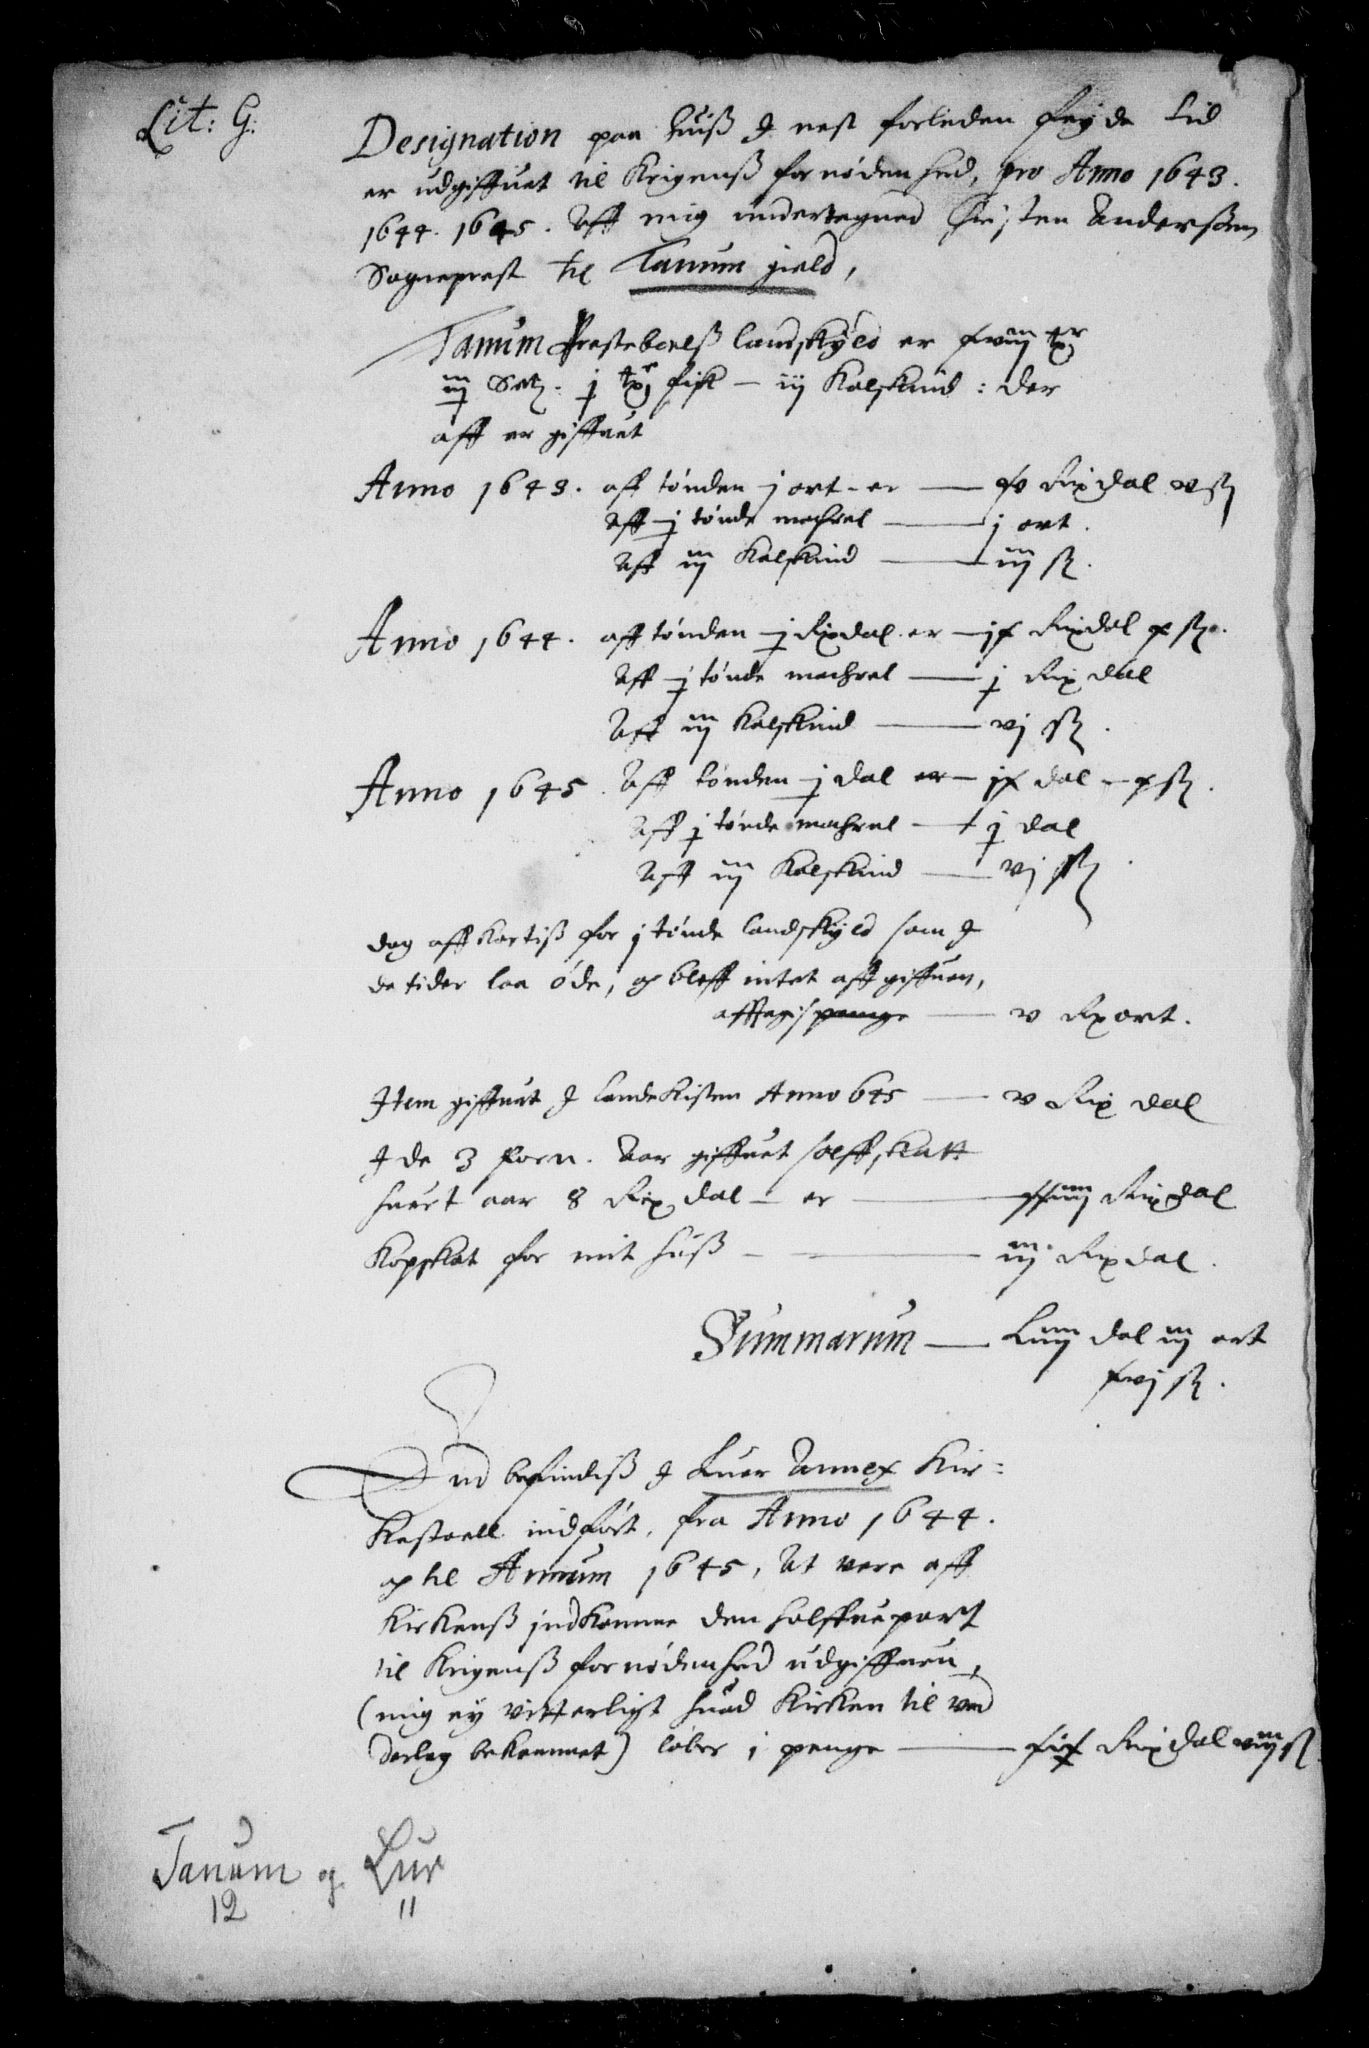 Lit: G:
Designation paa huiß I nest forleden feyde tid
er udgiffuet til Krigenß fornødenhed, pro Anno 1643.
1644. 1645. Aff mig undertegned Christen Anderßøn
Sogneprest til Tanum gield,
Tanum Prestebolß landskyld er
iij Setz. j fisk – iij Kalfskind : der
aff er giffuet
Anno 1643. aff tønden j ort – er — Rixdal
Aff j tønde machrel — j ort.
Aff iij Kalfskind — iij ß.
Anno 1644. aff tønden j Rixdal. er — ix Rixdal x ß.
Aff j tønde machrel — j Rixdal
Aff iij Kalfskind — vj ß.
Anno 1645. Aff tønden j dal er — ix dal – x ß.
Aff j tønde machrel — j dal
Aff iij Kalfskind — vj ß
dog affkortiß for j tønde landskyld som I
de tider laa øde, og bleff intet aff giffuen,
— v Rx ort.
Item giffuet I LandeKisten Anno 645 — v Rix dal
I de 3 forn. Aar giffuet sølffskatt
huert aar 8 Rix dal – er — xxiiij Rixdal
Kopskat for mit huß — iij Rixdal.
Summarum — Liiij dal iij ort
xvj ß.
End befindiß I Luer Annex Kir=
Kestoell indført, fra Anno 1644.
og til Annum 1645, At vere aff
Kirkenß indKomme den halffue part
til Krigenß fornødenhed udgiffuen,
(mig ey vitterligt huad Kirken til ved
derlag bekommet) løber i penge — Rixdal viij ß
Tanum og Lur
12 11